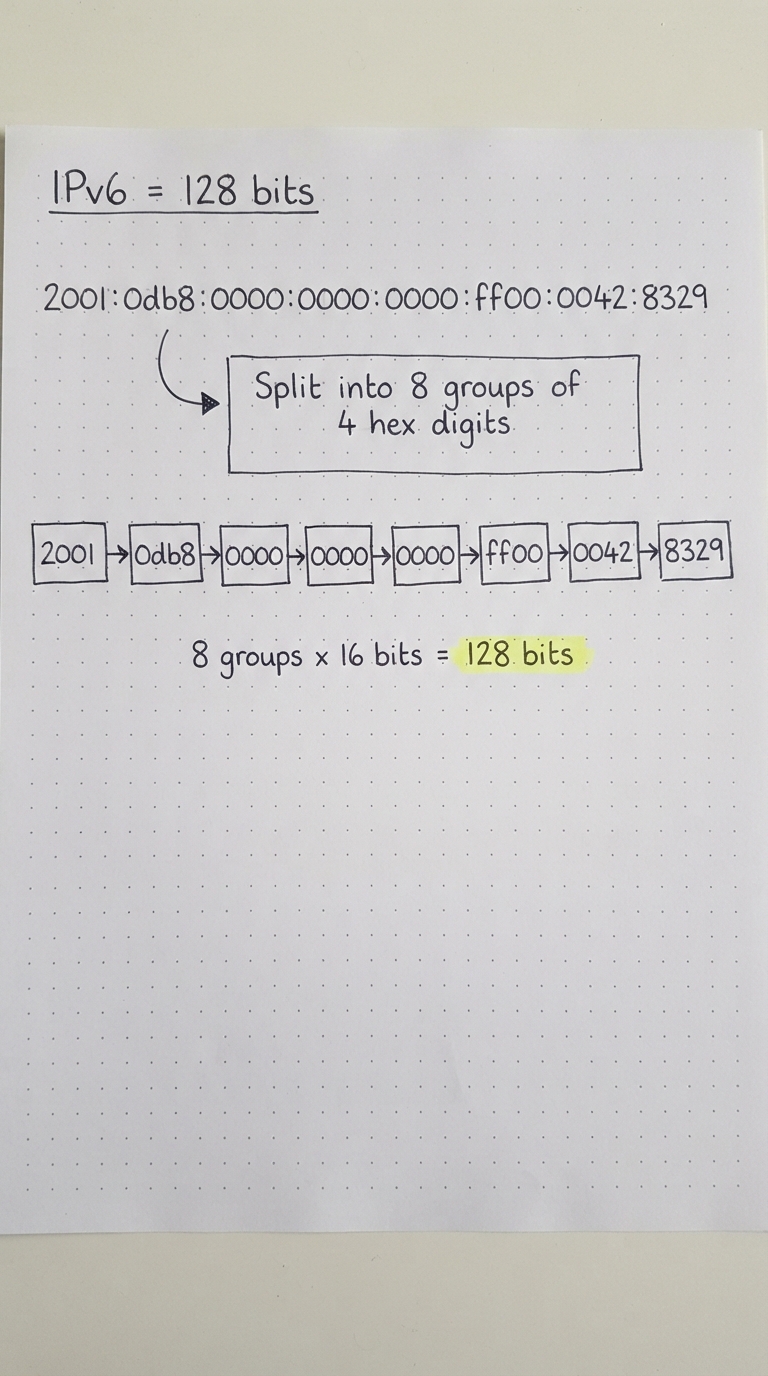 IPv6 = 128 bits
2001:0db8:0000:0000:0000:ff00:0042:8329
Split into 8 groups of
4 hex digits
2001 → 0db8 → 0000 → 0000 → 0000 → ff00 → 0042 → 8329
8 groups x 16 bits = 128 bits